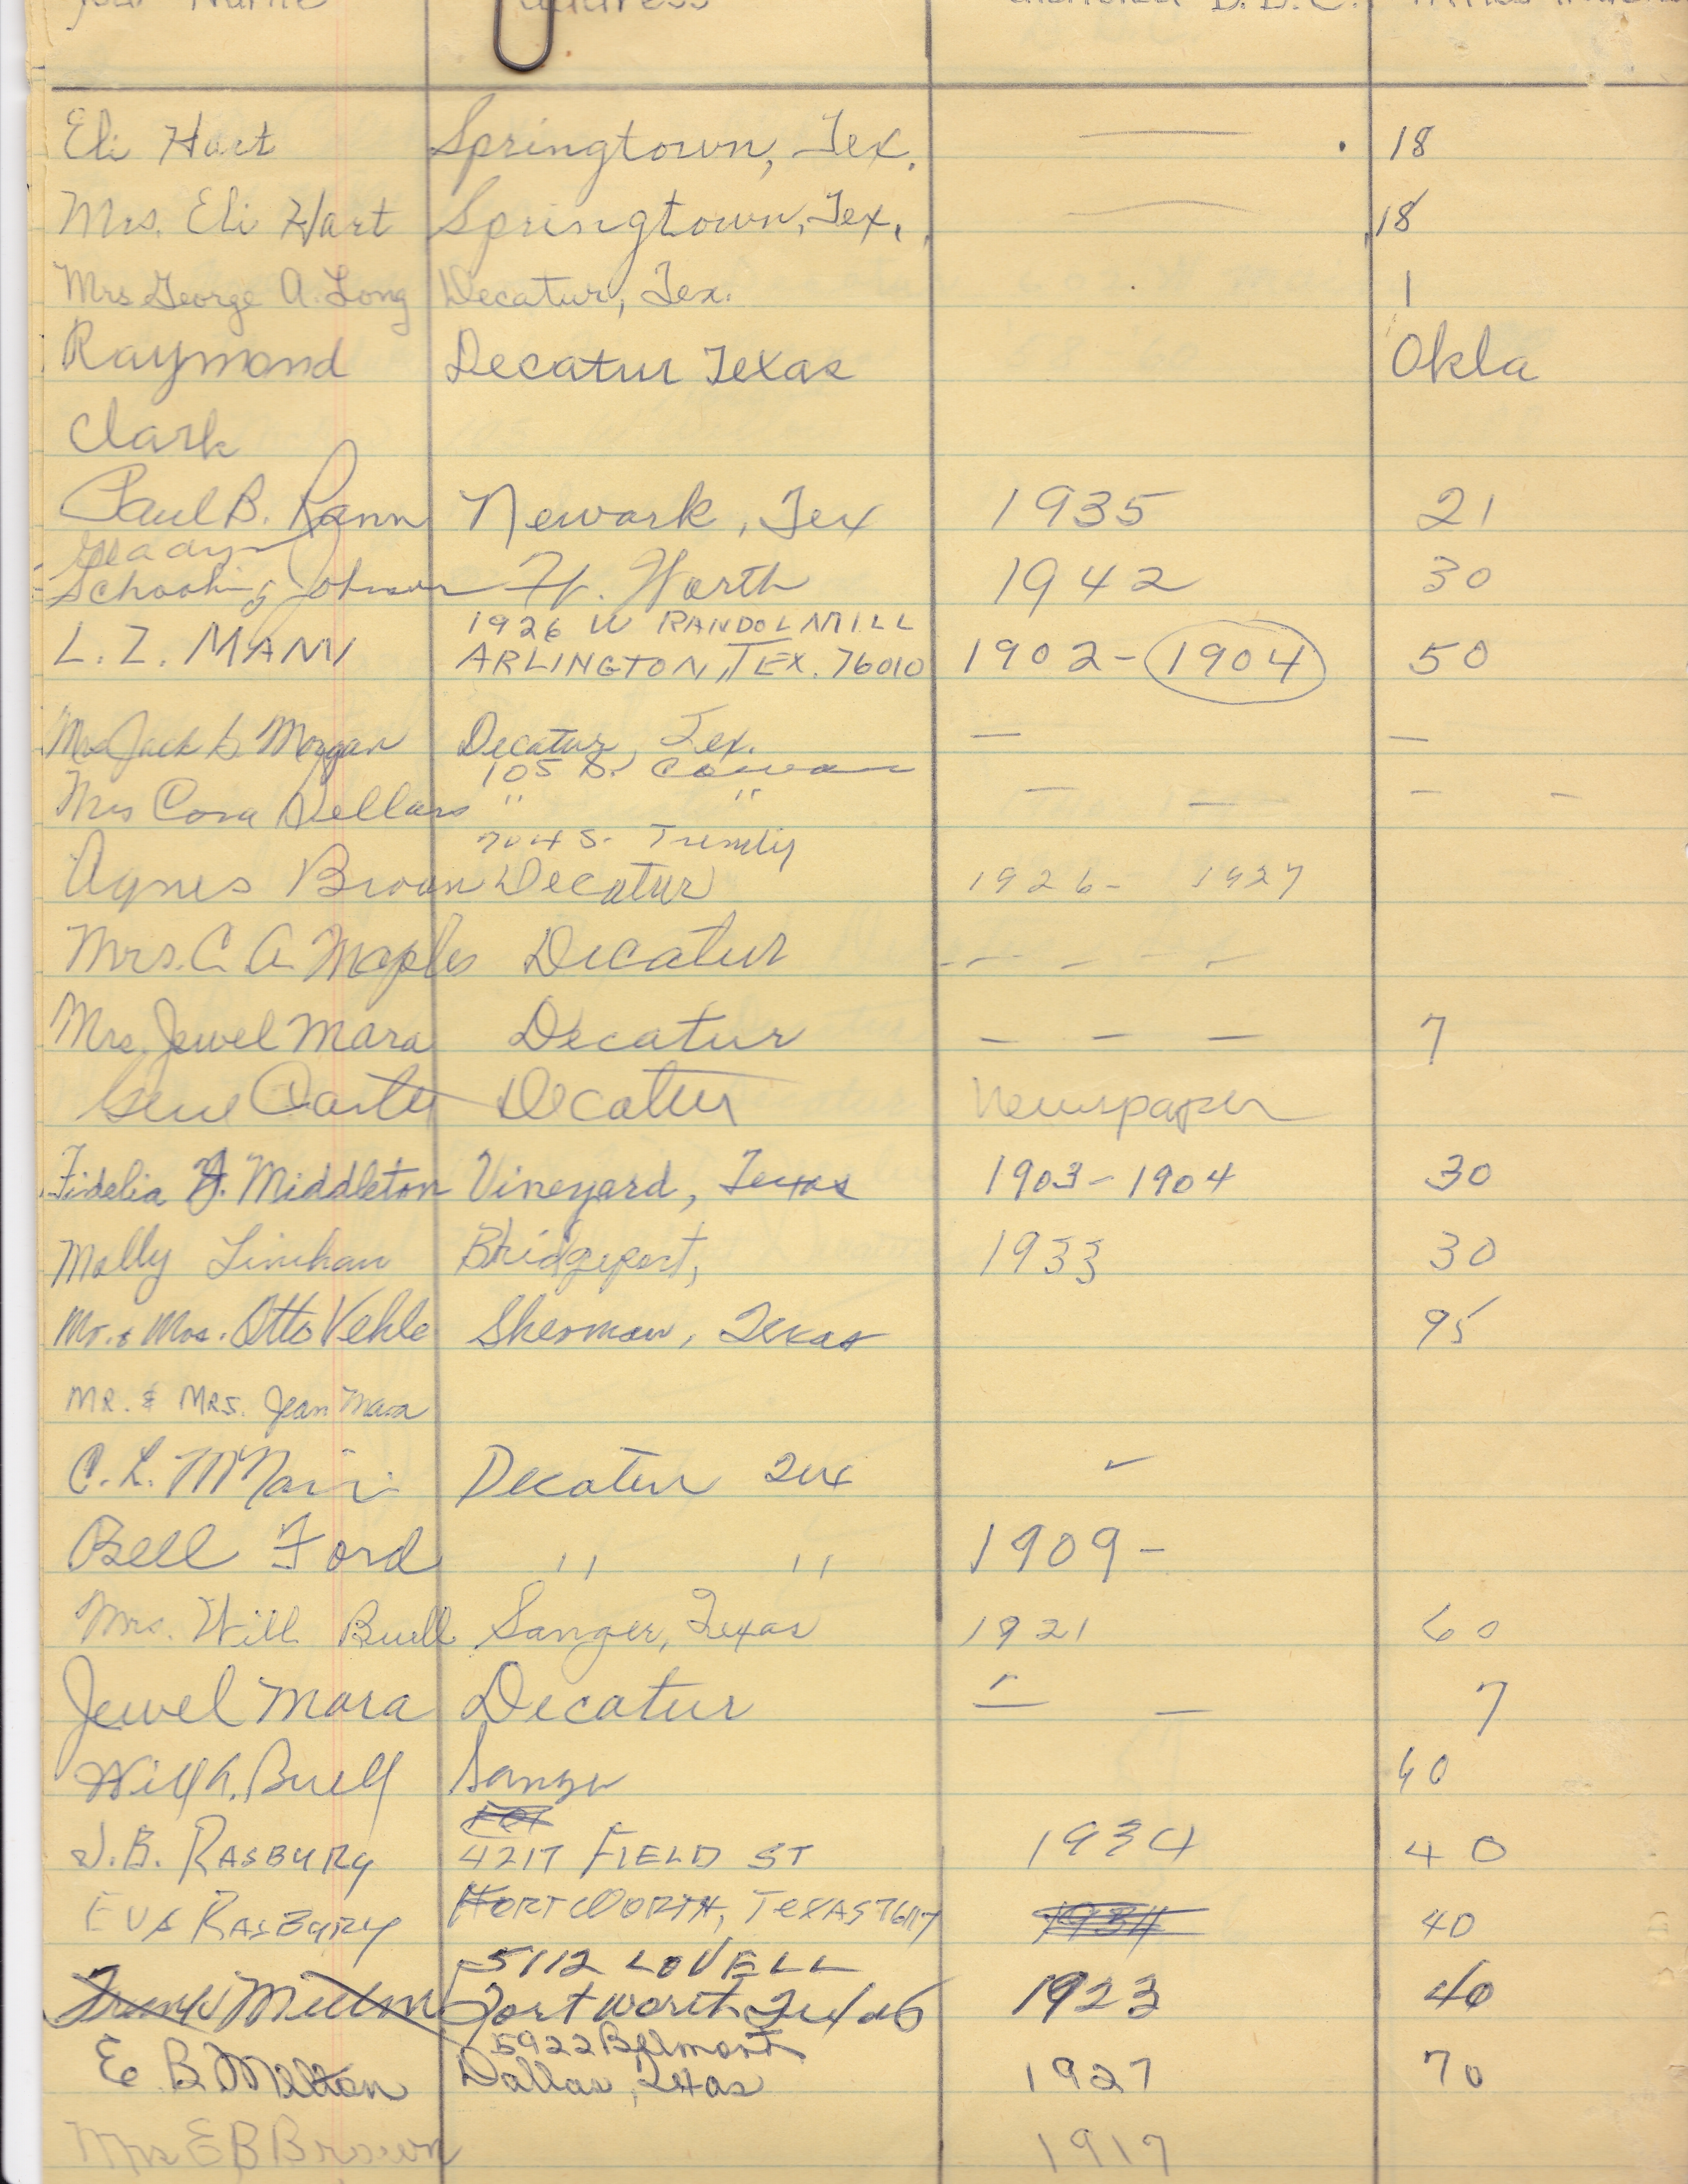 your Name address attended D.B.C. miles
Eli Hart Springtown, Tex. — 18
Mrs. Eli Hart Springtown, Tex. — 18
Mrs George A. Long Decatur, Tex. 1
Raymond Decatur Texas Okla
Clark
Paul B. Rann Newark, Tex 1935 21
Grady
Johnson Ft. Worth 1942 30
1926 W RANDOLMILL
L. Z. MANN ARLINGTON, TEX. 76010 1902-1904 50
Mrs Jack G Morgan Decatur, Tex. — —
105 S. Cowan
Mrs Cora Sellars " " — — — —
704 S. Trinity
Agnes Brown Decatur 1926- 1927
Mrs. C. A. Maples Decatur - - - - -
Mrs. Jewel Mara Decatur — — — 7
Gene Carter Decatur Newspaper
Fidelia F. Middleton Vineyard, Texas 1903-1904 30
Molly Linehan Bridgeport, 1933 30
Mr. & Mrs. Otto Vehle Sherman, Texas 95
MR. & MRS. Jean Mara
C. L. McNair Decatur Tex ✓
Bell Ford " " 1909-
Mrs. Will Buell Sanger, Texas 1921 60
Jewel Mara Decatur — — 7
Will A. Buell Sanger 60
J. B. RASBURY 4217 FIELD ST 1934 40
EVA RASBURY FORT WORTH, TEXAS 76117 1934 40
5112 LOVELL
Melton Fort Worth, Texas 1923 40
5922 Belmont
E B Melton Dallas, Texas 1927 70
Mrs E B Brown 1917